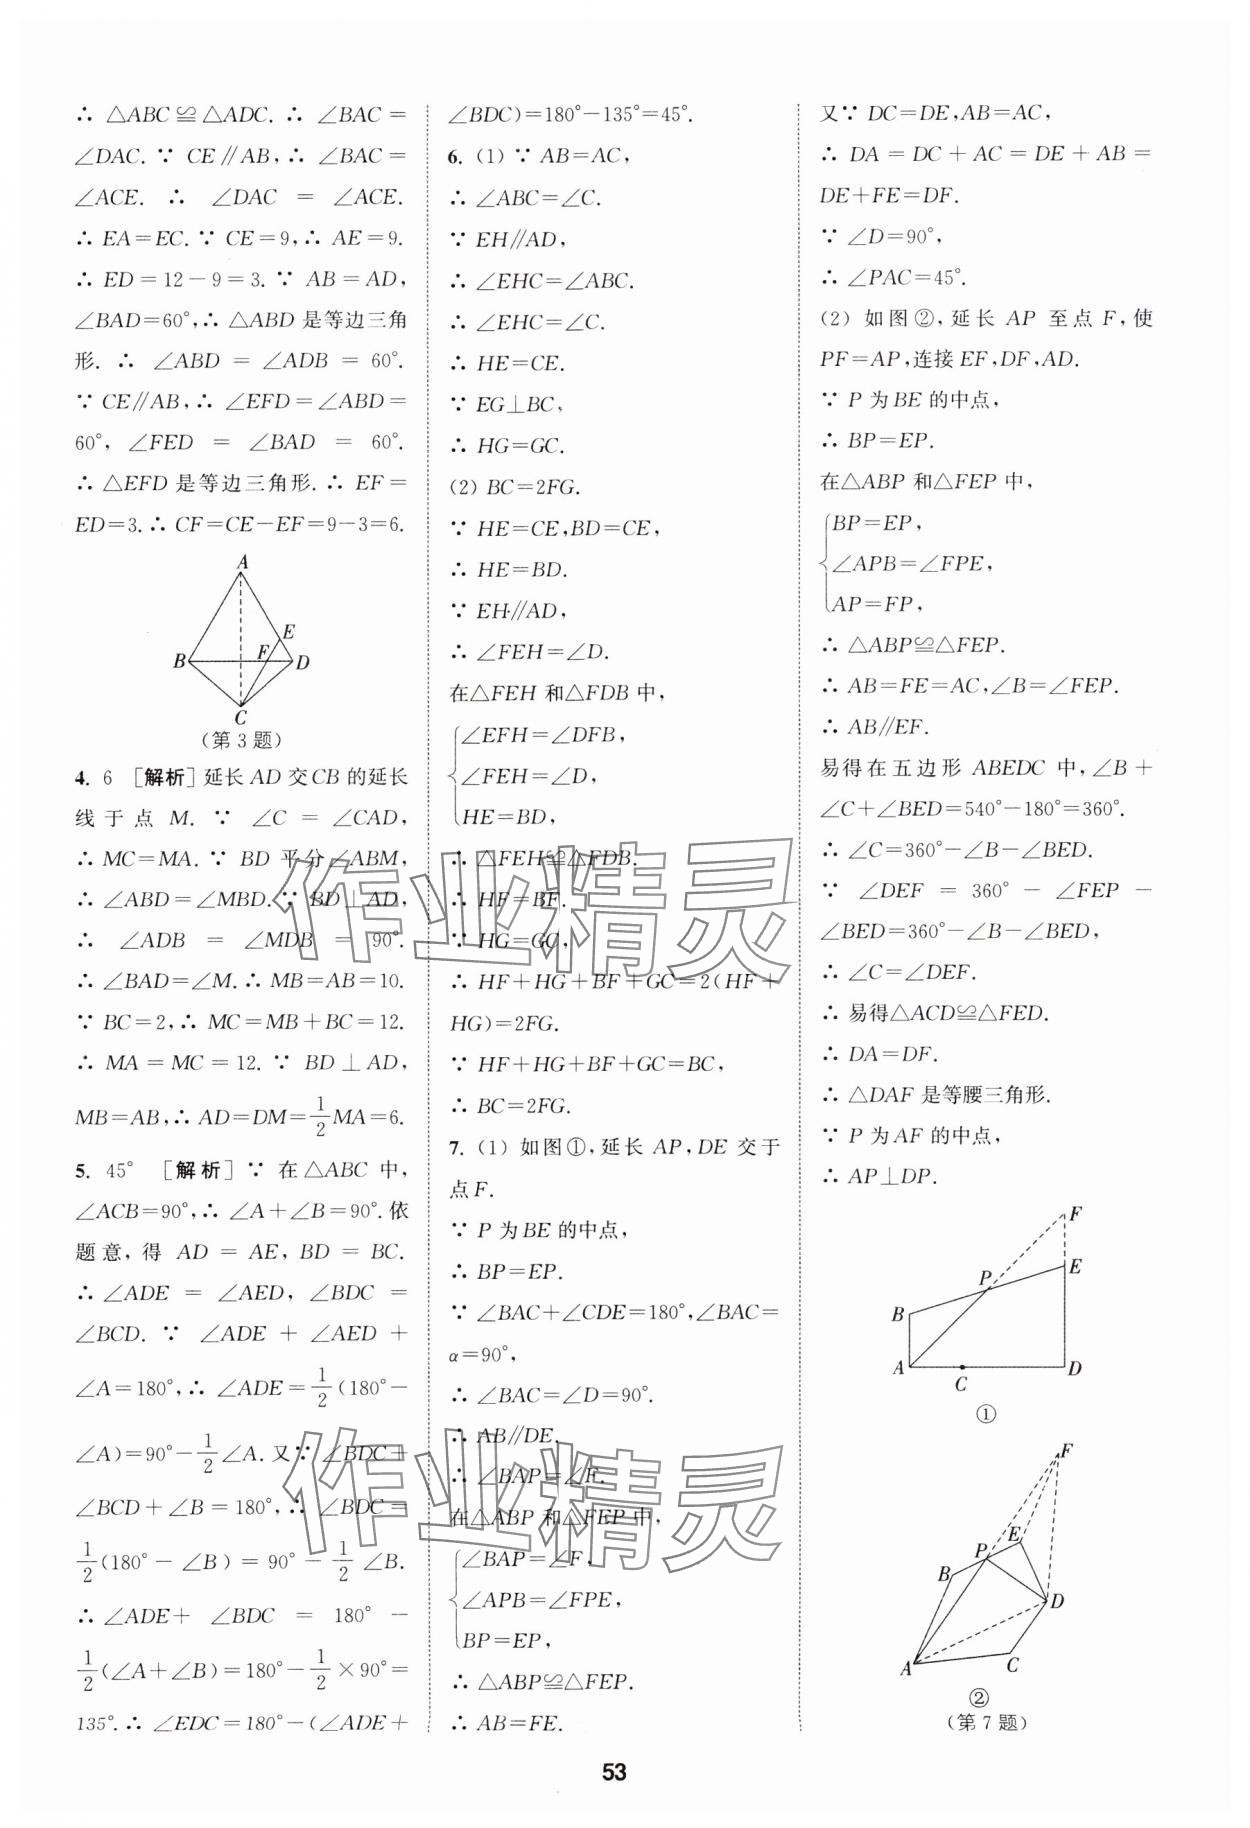 ∴ △ABC≌△ADC. ∴ ∠BAC=
∠DAC. ∵ CE∥AB,∴ ∠BAC=
∠ACE. ∴ ∠DAC = ∠ACE.
∴ EA=EC. ∵ CE=9,∴ AE=9.
∴ ED=12-9=3. ∵ AB=AD,
∠BAD=60°,∴ △ABD 是等边三角
形. ∴ ∠ABD = ∠ADB = 60°.
∵ CE∥AB,∴ ∠EFD=∠ABD=
60°, ∠FED = ∠BAD = 60°.
∴ △EFD 是等边三角形.∴ EF=
ED=3.∴ CF=CE-EF=9-3=6.
A
E
F
B
D
C
(第 3 题)
4. 6 [解析]延长 AD 交 CB 的延长
线于点 M. ∵ ∠C = ∠CAD,
∴ MC=MA. ∵ BD 平分∠ABM,
∴ ∠ABD=∠MBD. ∵ BD⊥AD,
∴ ∠ADB = ∠MDB = 90°.
∴ ∠BAD=∠M.∴ MB=AB=10.
∵ BC=2,∴ MC=MB+BC=12.
∴ MA=MC=12. ∵ BD⊥AD,
MB=AB,∴ AD=DM=1/2MA=6.
5. 45° [解析]∵ 在△ABC 中,
∠ACB=90°,∴ ∠A+∠B=90°.依
题意,得 AD = AE, BD = BC.
∴ ∠ADE = ∠AED, ∠BDC =
∠BCD. ∵ ∠ADE + ∠AED +
∠A=180°,∴ ∠ADE=1/2(180°-
∠A)=90°-1/2∠A.又∵ ∠BDC+
∠BCD+∠B=180°,∴ ∠BDC=
1/2(180°-∠B)=90°-1/2∠B.
∴ ∠ADE+ ∠BDC = 180° -
1/2(∠A+∠B)=180°-1/2×90°=
135°.∴ ∠EDC=180°-(∠ADE+
∠BDC)=180°-135°=45°.
6. (1) ∵ AB=AC,
∴ ∠ABC=∠C.
∵ EH∥AD,
∴ ∠EHC=∠ABC.
∴ ∠EHC=∠C.
∴ HE=CE.
∵ EG⊥BC,
∴ HG=GC.
(2) BC=2FG.
∵ HE=CE,BD=CE,
∴ HE=BD.
∵ EH∥AD,
∴ ∠FEH=∠D.
在△FEH 和△FDB 中,
∠EFH=∠DFB,
∠FEH=∠D,
HE=BD,
∴ △FEH≌△FDB.
∴ HF=BF.
∵ HG=GC,
∴ HF+HG+BF+GC=2(HF+
HG)=2FG.
∵ HF+HG+BF+GC=BC,
∴ BC=2FG.
7. (1) 如图①,延长 AP,DE 交于
点 F.
∵ P 为 BE 的中点,
∴ BP=EP.
∵ ∠BAC+∠CDE=180°,∠BAC=
α=90°,
∴ ∠BAC=∠D=90°.
∴ AB∥DE.
∴ ∠BAP=∠F.
在△ABP 和△FEP 中,
∠BAP=∠F,
∠APB=∠FPE,
BP=EP,
∴ △ABP≌△FEP.
∴ AB=FE.
又∵ DC=DE,AB=AC,
∴ DA=DC+AC=DE+AB=
DE+FE=DF.
∵ ∠D=90°,
∴ ∠PAC=45°.
(2) 如图②,延长 AP 至点 F,使
PF=AP,连接 EF,DF,AD.
∵ P 为 BE 的中点,
∴ BP=EP.
在△ABP 和△FEP 中,
BP=EP,
∠APB=∠FPE,
AP=FP,
∴ △ABP≌△FEP.
∴ AB=FE=AC,∠B=∠FEP.
∴ AB∥EF.
易得在五边形 ABEDC 中,∠B+
∠C+∠BED=540°-180°=360°.
∴ ∠C=360°-∠B-∠BED.
∵ ∠DEF = 360° - ∠FEP -
∠BED=360°-∠B-∠BED,
∴ ∠C=∠DEF.
∴ 易得△ACD≌△FED.
∴ DA=DF.
∴ △DAF 是等腰三角形.
∵ P 为 AF 的中点,
∴ AP⊥DP.
F
E
P
B
A
C
D
①
F
E
P
B
D
A
C
②
(第 7 题)
53
作业精灵
作业精灵